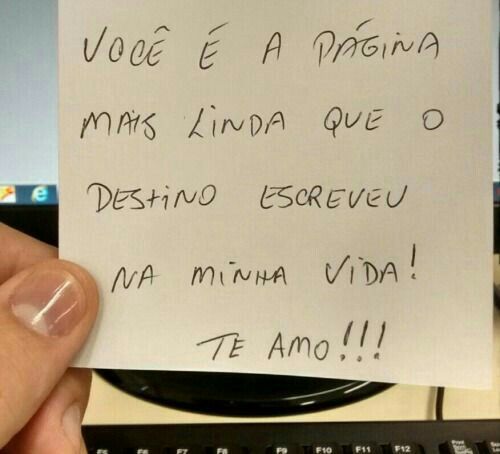 VOCÊ É A PÁGINA
MAIS LINDA QUE O
DESTINO ESCREVEU
NA MINHA VIDA!
TE AMO!!!
F5 F6 F7 F8 F9 F10 F11 F12